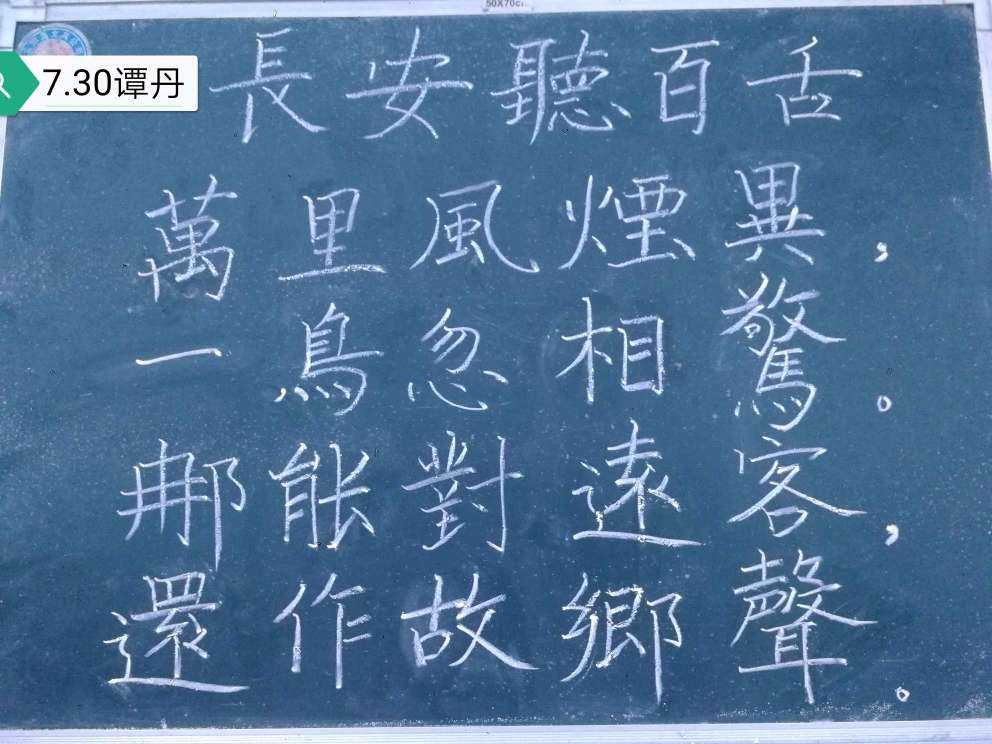 50X70c
7.30谭丹
長安聽百舌
萬里風煙異,
一鳥忽相驚。
那能對遠客,
還作故鄉聲。